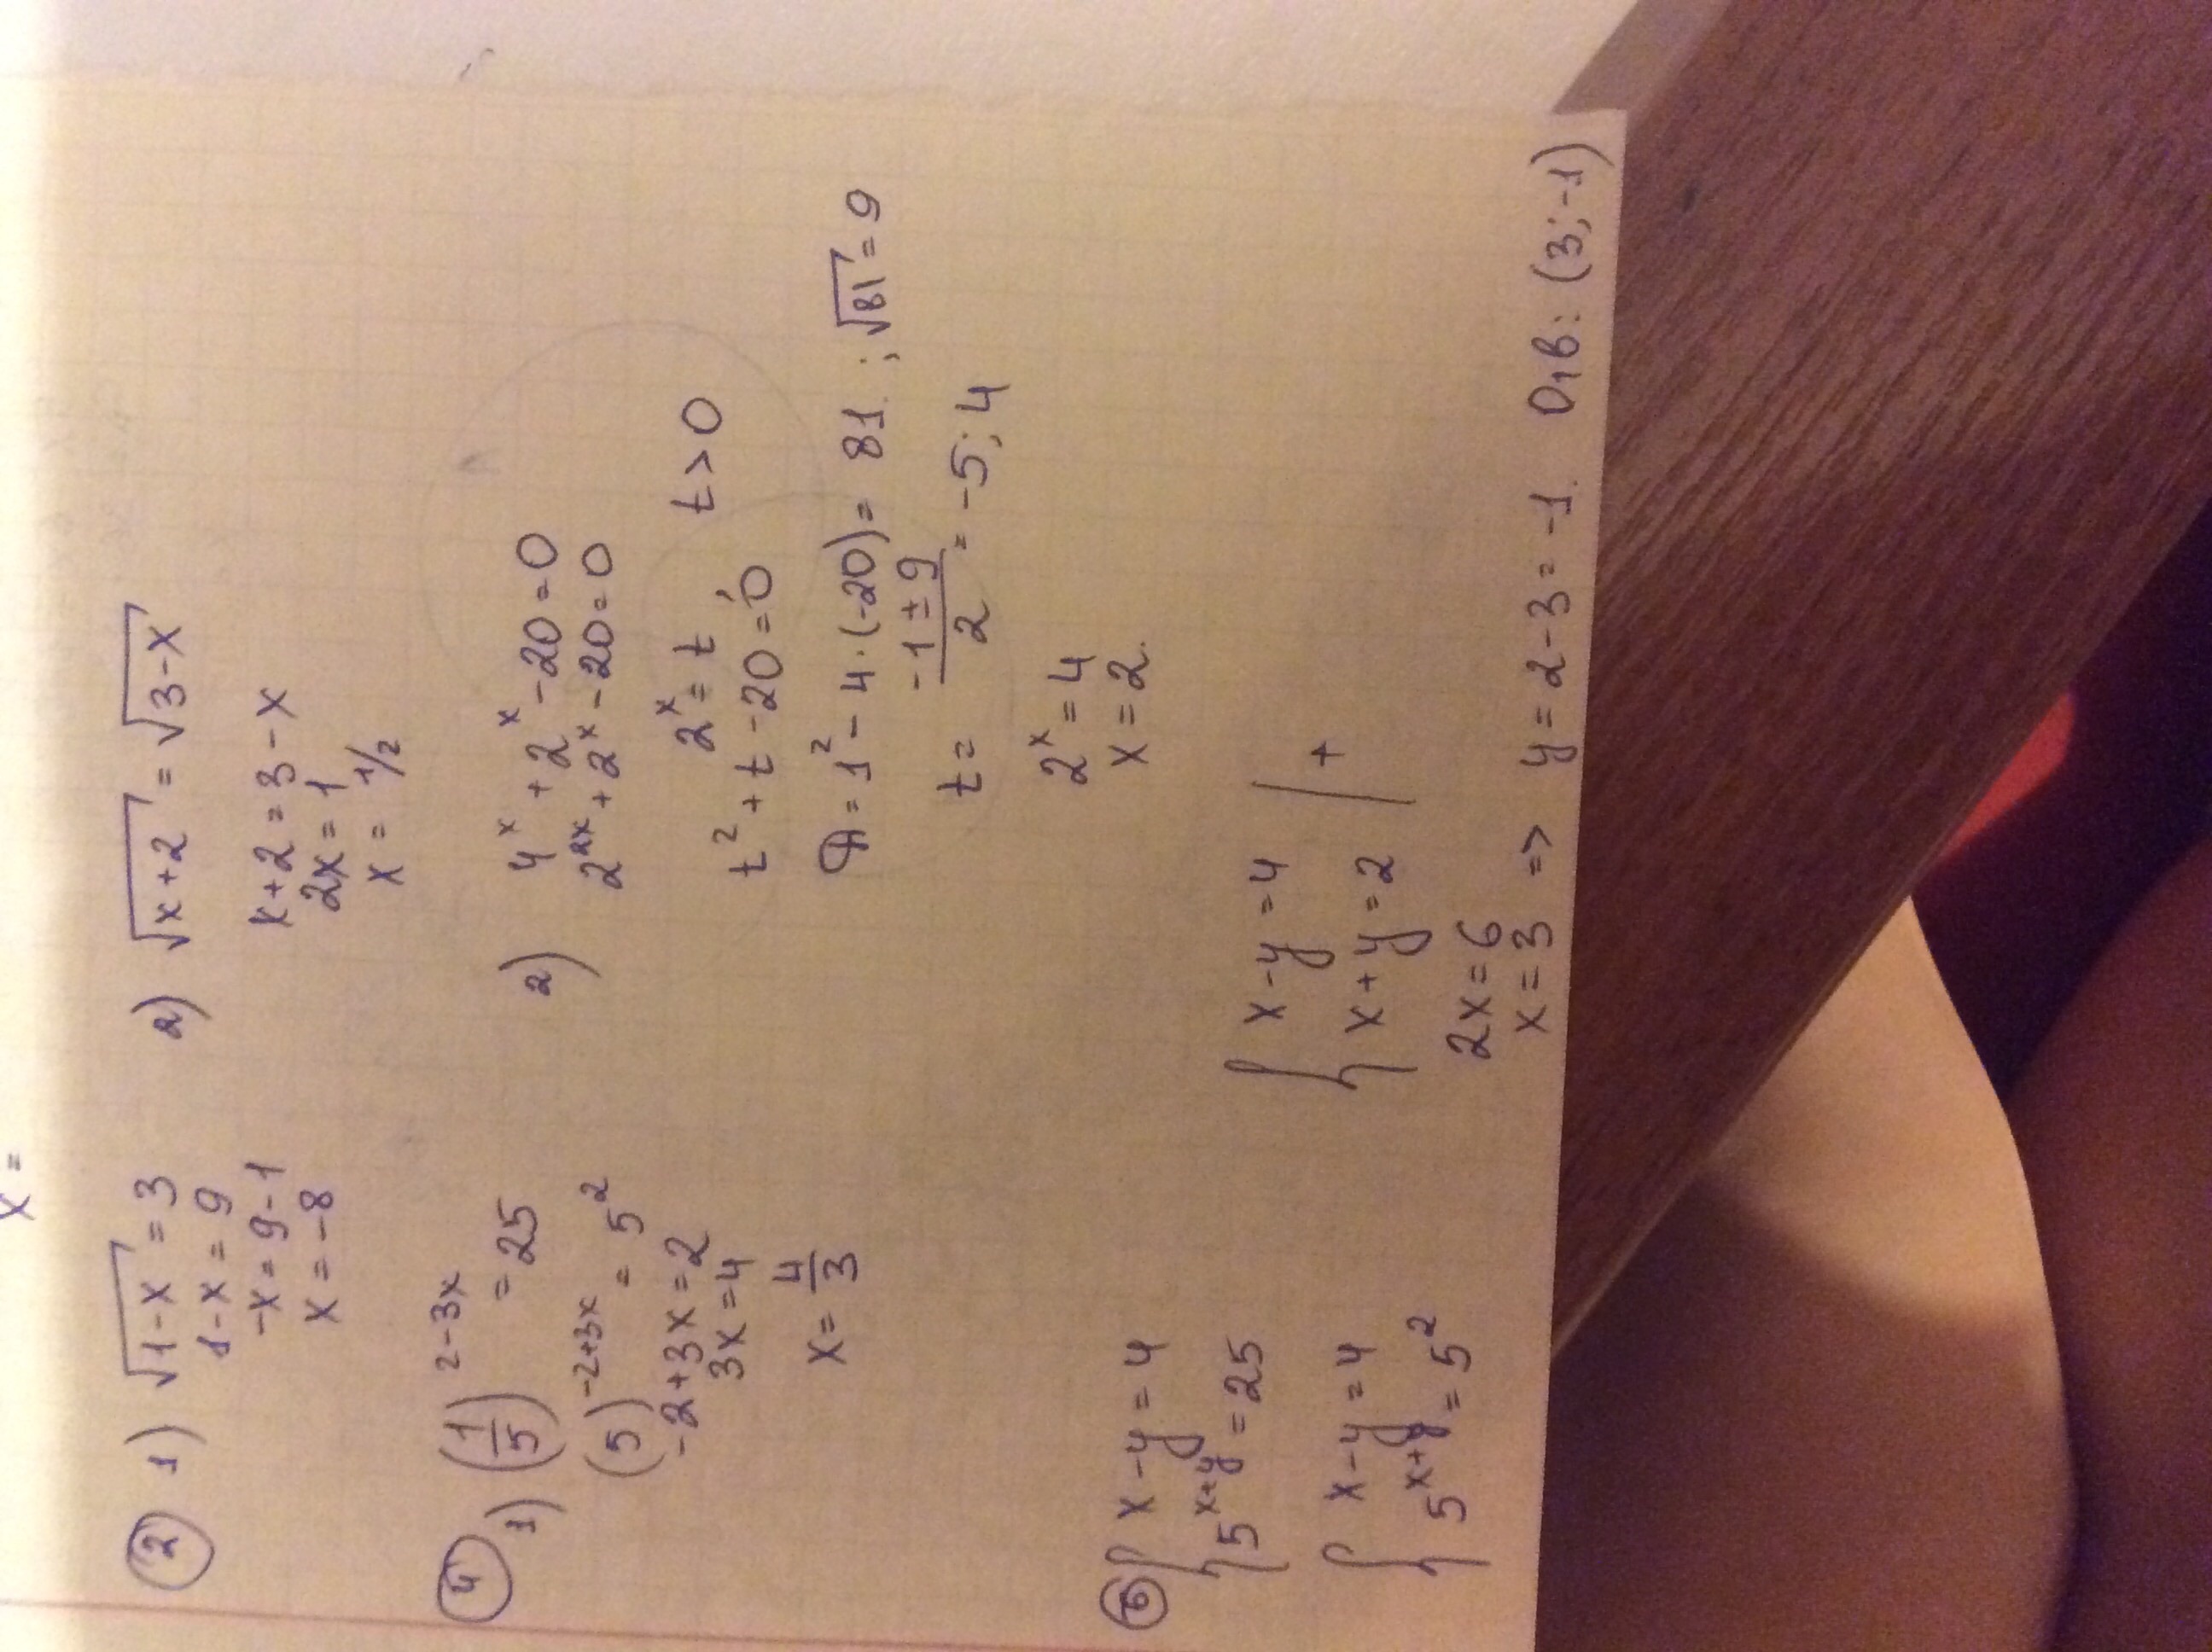 x =
② 1) √(1-x) = 3
1-x = 9
-x = 9-1
x = -8
2) √(x+2) = √(3-x)
x+2 = 3-x
2x = 1
x = 1/2
④ 1) (1/5)^(2-3x) = 25
(5)^(-2+3x) = 5²
-2+3x = 2
3x = 4
x = 4/3
2) 4^x + 2^x - 20 = 0
2^(2x) + 2^x - 20 = 0
2^x = t, t > 0
t² + t - 20 = 0
D = 1² - 4·(-20) = 81. ; √81 = 9
t = (-1 ± 9)/2 = -5; 4
2^x = 4
x = 2.
⑥ { x-y = 4
5^(x+y) = 25
{ x-y = 4
5^(x+y) = 5²
{ x-y = 4
x+y = 2 | +
2x = 6
x = 3 => y = 2-3 = -1. Отв: (3; -1)